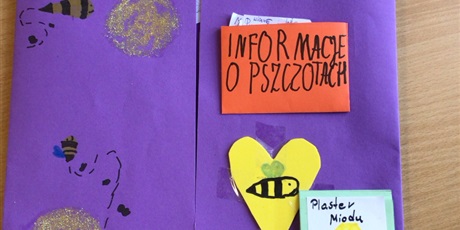 INFORMACJE
O PSZCZOŁACH
Plaster
Miodu